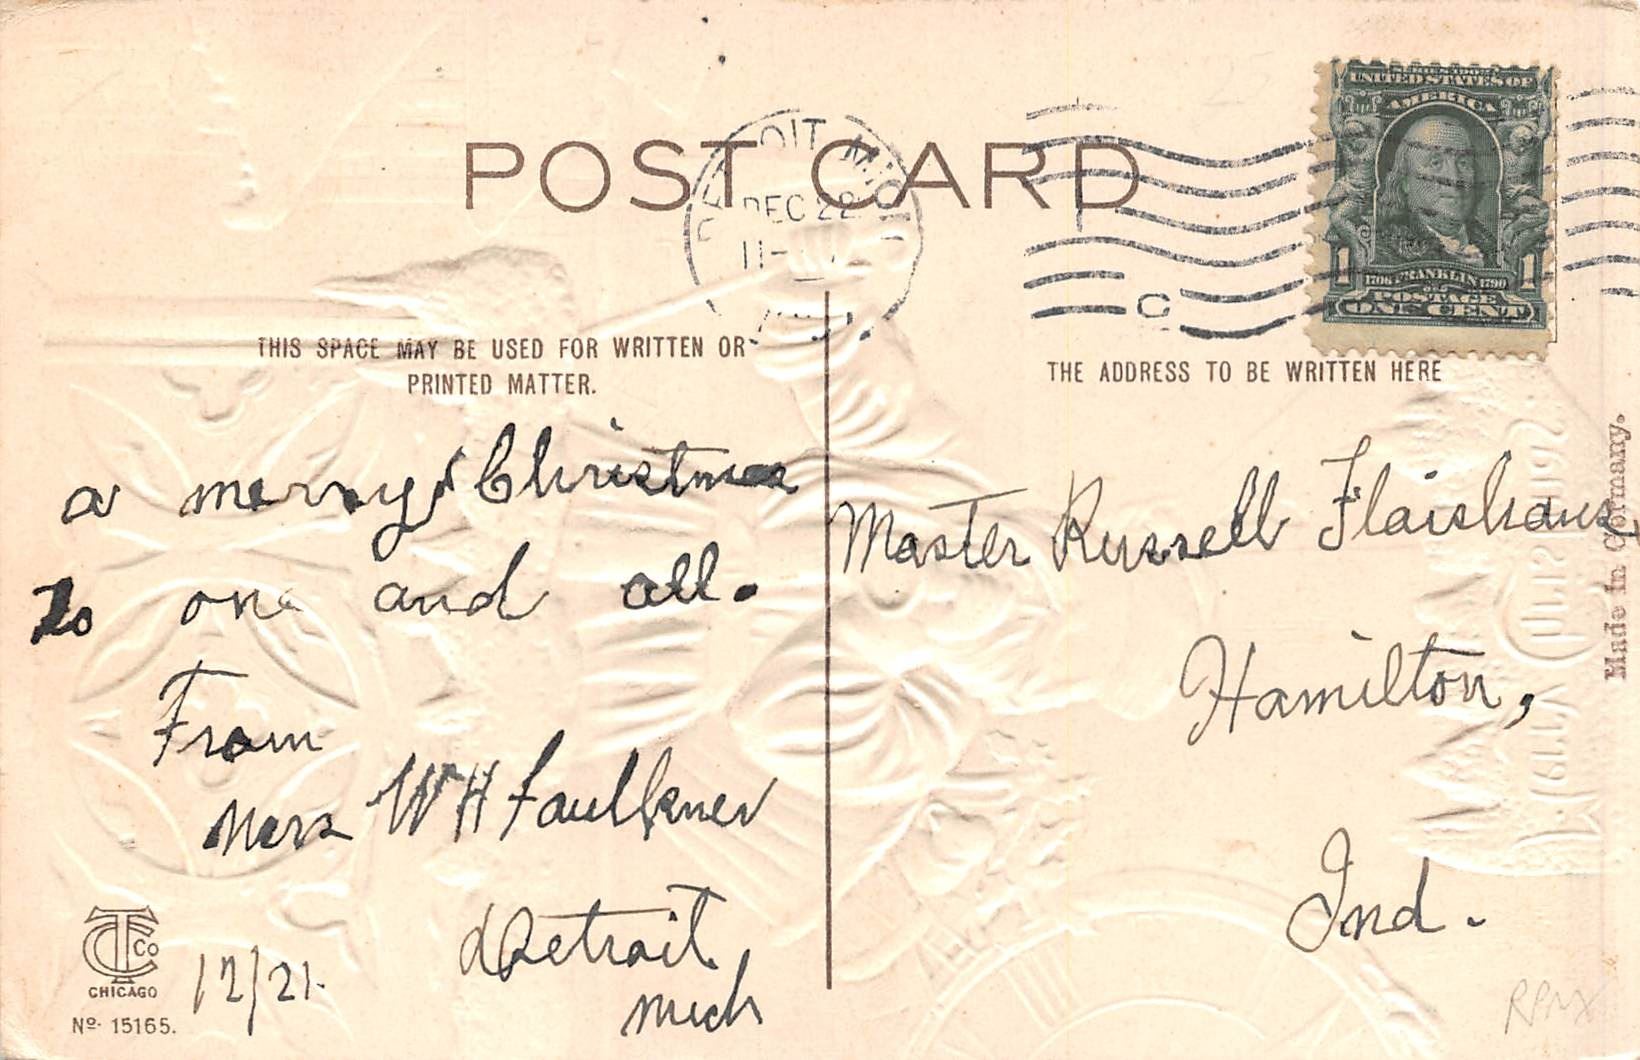 POST CARD
DETROIT, MICH.
DEC 22
11-
C
SERIES 1902
UNITED STATES OF
AMERICA
1 1706 FRANKLIN 1790 1
POSTAGE
ONE CENT
THIS SPACE MAY BE USED FOR WRITTEN OR
PRINTED MATTER.
THE ADDRESS TO BE WRITTEN HERE
a merry Christmas
To one and all.
From
Mrs W H Faulkner
Detroit
Mich
12/21.
Master Russell Flaishans
Hamilton,
Ind.
Made in Germany.
CTCo
CHICAGO
No. 15165.